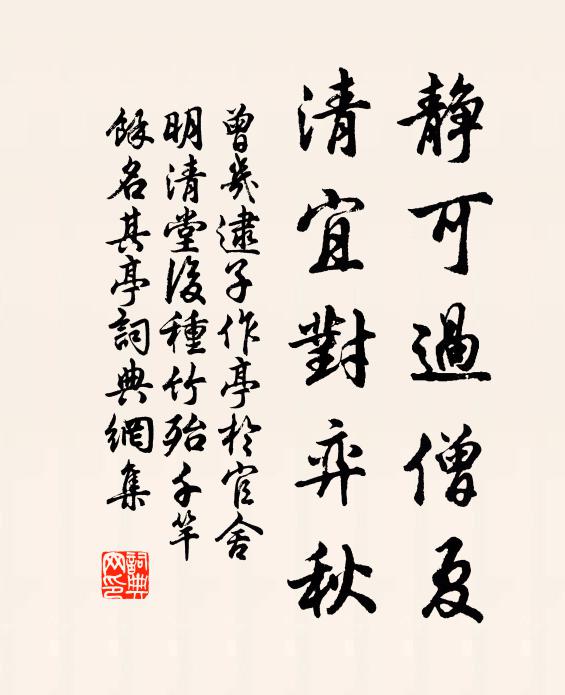 静可過僧夏
清宜對弈秋
曾幾逮子作亭於官舍
明清堂後種竹殆千竿
餘名其亭詞典網集
詞典網印